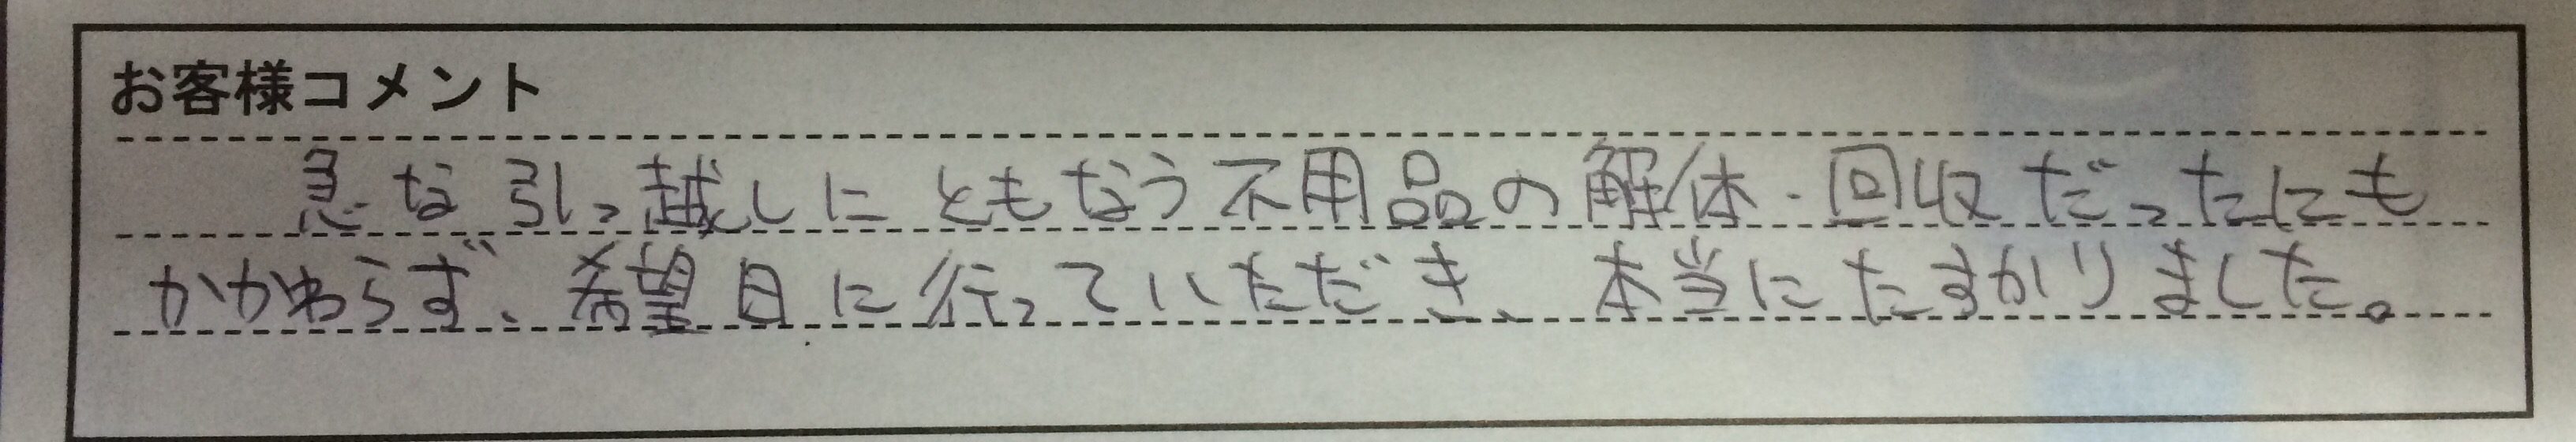 お客様コメント
急な引っ越しにともなう不用品の解体・回収だったにも
かかわらず、希望日に行っていただき、本当にたすかりました。